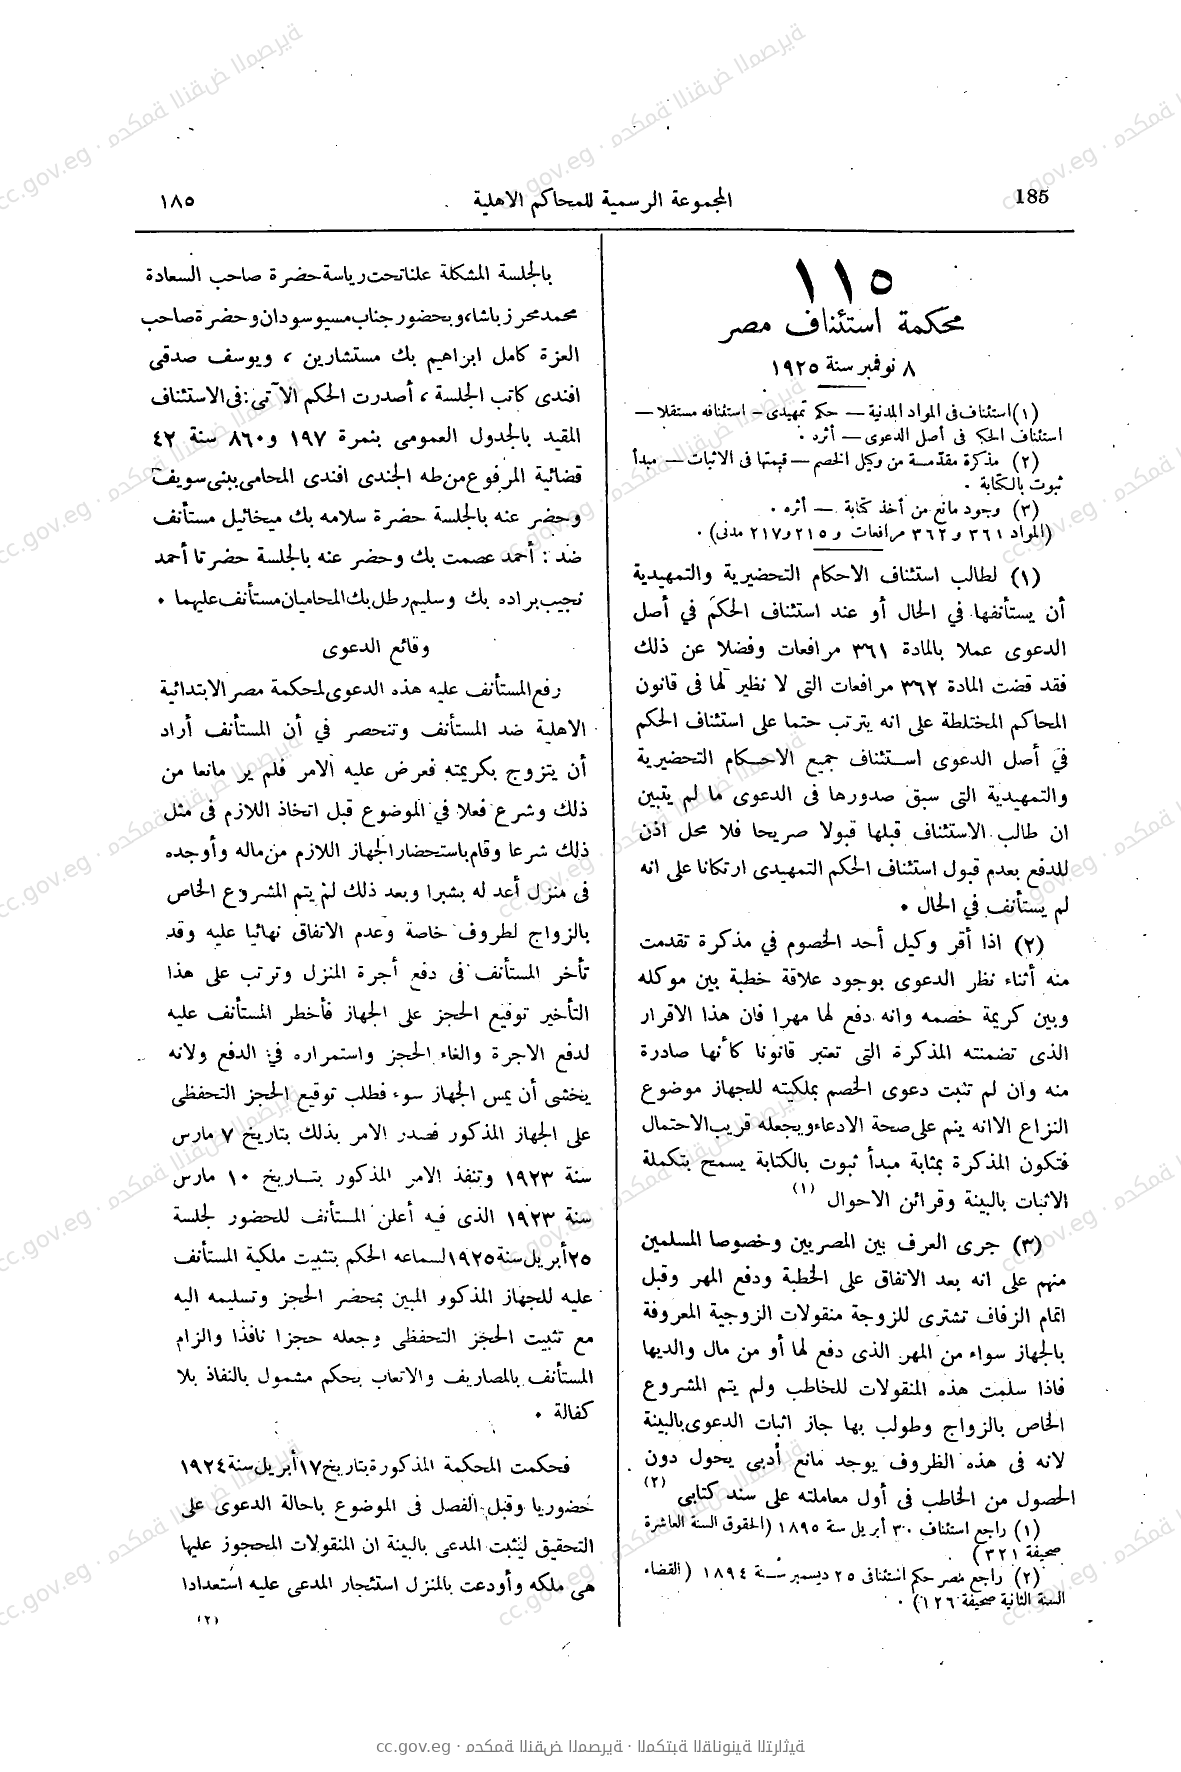 185
المجموعة الرسمية للمحاكم الاهلية
١٨٥
١١٥
محكمة استئناف مصر
٨ نوفمبر سنة ١٩٢٥
(١) استئناف فى المواد المدنية — حكم تمهيدى — استئنافه مستقلا —
استئناف الحكم فى أصل الدعوى — أثره ٠
(٢) مذكرة مقدّمة من وكيل الخصم — قيمتها فى الاثبات — مبدأ
ثبوت بالكتابة ٠
(٣) وجود مانع من أخذ كتابة — أثره ٠
(المواد ٣٦١ و٣٦٢ مرافعات و ٢١٥ و٢١٧ مدنى) ٠
(١) لطالب استئناف الاحكام التحضيرية والتمهيدية
أن يستأنفها في الحال أو عند استئناف الحكم في أصل
الدعوى عملا بالمادة ٣٦١ مرافعات وفضلا عن ذلك
فقد قضت المادة ٣٦٢ مرافعات التى لا نظير لها فى قانون
المحاكم المختلطة على انه يترتب حتما على استئناف الحكم
في أصل الدعوى استئناف جميع الاحكام التحضيرية
والتمهيدية التى سبق صدورها فى الدعوى ما لم يتبين
ان طالب الاستئناف قبلها قبولا صريحا فلا محل اذن
للدفع بعدم قبول استئناف الحكم التمهيدى ارتكانا على انه
لم يستأنف في الحال ٠
(٢) اذا أقر وكيل أحد الخصوم في مذكرة تقدمت
منه أثناء نظر الدعوى بوجود علاقة خطبة بين موكله
وبين كريمة خصمه وانه دفع لها مهرا فان هذا الاقرار
الذى تضمنته المذكرة التى تعتبر قانونا كأنها صادرة
منه وان لم تثبت دعوى الخصم بملكيته للجهاز موضوع
النزاع الا انه ينم على صحة الادعاء ويجعله قريب الاحتمال
فتكون المذكرة بمثابة مبدأ ثبوت بالكتابة يسمح بتكملة
الاثبات بالبينة وقرائن الاحوال (١)
(٣) جرى العرف بين المصريين وخصوصا المسلمين
منهم على انه بعد الاتفاق على الخطبة ودفع المهر وقبل
اتمام الزفاف تشترى للزوجة منقولات الزوجية المعروفة
بالجهاز سواء من المهر الذى دفع لها أو من مال والديها
فاذا سلمت هذه المنقولات للخاطب ولم يتم المشروع
الخاص بالزواج وطولب بها جاز اثبات الدعوى بالبينة
لانه فى هذه الظروف يوجد مانع أدبى يحول دون
الحصول من الخاطب فى أول معاملته على سند كتابى (٢)
(١) راجع استئناف ٣٠ أبريل سنة ١٨٩٥ (الحقوق السنة العاشرة
صحيفة ٣٢١) ٠
(٢) راجع مصر حكم استئنافى ٢٥ ديسمبر سنة ١٨٩٤ (القضاء
السنة الثانية صحيفة ١٢٦) ٠
بالجلسة المشكلة علنا تحت رياسة حضرة صاحب السعادة
محمد محرز باشا، وبحضور جناب مسيو سودان وحضرة صاحب
العزة كامل ابراهيم بك مستشارين ، ويوسف صدقى
افندى كاتب الجلسة ، أصدرت الحكم الآتى : فى الاستئناف
المقيد بالجدول العمومى بنمرة ١٩٧ و٨٦٠ سنة ٤٢
قضائية المرفوع من طه الجندى افندى المحامى ببنى سويف
وحضر عنه بالجلسة حضرة سلامه بك ميخائيل مستأنف
ضد : أحمد عصمت بك وحضر عنه بالجلسة حضرتا أحمد
نجيب براده بك وسليم رطل بك المحاميان مستأنف عليهما ٠
وقائع الدعوى
رفع المستأنف عليه هذه الدعوى لمحكمة مصر الابتدائية
الاهلية ضد المستأنف وتنحصر في أن المستأنف أراد
أن يتزوج بكريمته فعرض عليه الامر فلم ير مانعا من
ذلك وشرع فعلا في الموضوع قبل اتخاذ اللازم فى مثل
ذلك شرعا وقام باستحضار الجهاز اللازم من ماله وأوجده
فى منزل أعد له بشبرا وبعد ذلك لم يتم المشروع الخاص
بالزواج لظروف خاصة وعدم الاتفاق نهائيا عليه وقد
تأخر المستأنف فى دفع أجرة المنزل وترتب على هذا
التأخير توقيع الحجز على الجهاز فأخطر المستأنف عليه
لدفع الاجرة والغاء الحجز واستمراره في الدفع ولانه
يخشى أن يمس الجهاز سوء فطلب توقيع الحجز التحفظى
على الجهاز المذكور فصدر الامر بذلك بتاريخ ٧ مارس
سنة ١٩٢٣ وتنفذ الامر المذكور بتاريخ ١٠ مارس
سنة ١٩٢٣ الذى فيه أعلن المستأنف للحضور لجلسة
٢٥ أبريل سنة ١٩٢٥ لسماعه الحكم بتثبيت ملكية المستأنف
عليه للجهاز المذكور المبين بمحضر الحجز وتسليمه اليه
مع تثبيت الحجز التحفظى وجعله حجزا نافذا والزام
المستأنف بالمصاريف والاتعاب بحكم مشمول بالنفاذ بلا
كفالة ٠
فحكمت المحكمة المذكورة بتاريخ ١٧ أبريل سنة ١٩٢٤
حضوريا وقبل الفصل فى الموضوع باحالة الدعوى على
التحقيق ليثبت المدعى بالبينة ان المنقولات المحجوز عليها
هى ملكه وأودعت بالمنزل استئجار المدعى عليه استعدادا
(٢)
cc.gov.eg · محكمة النقض المصرية · المكتبة القانونية التراثية